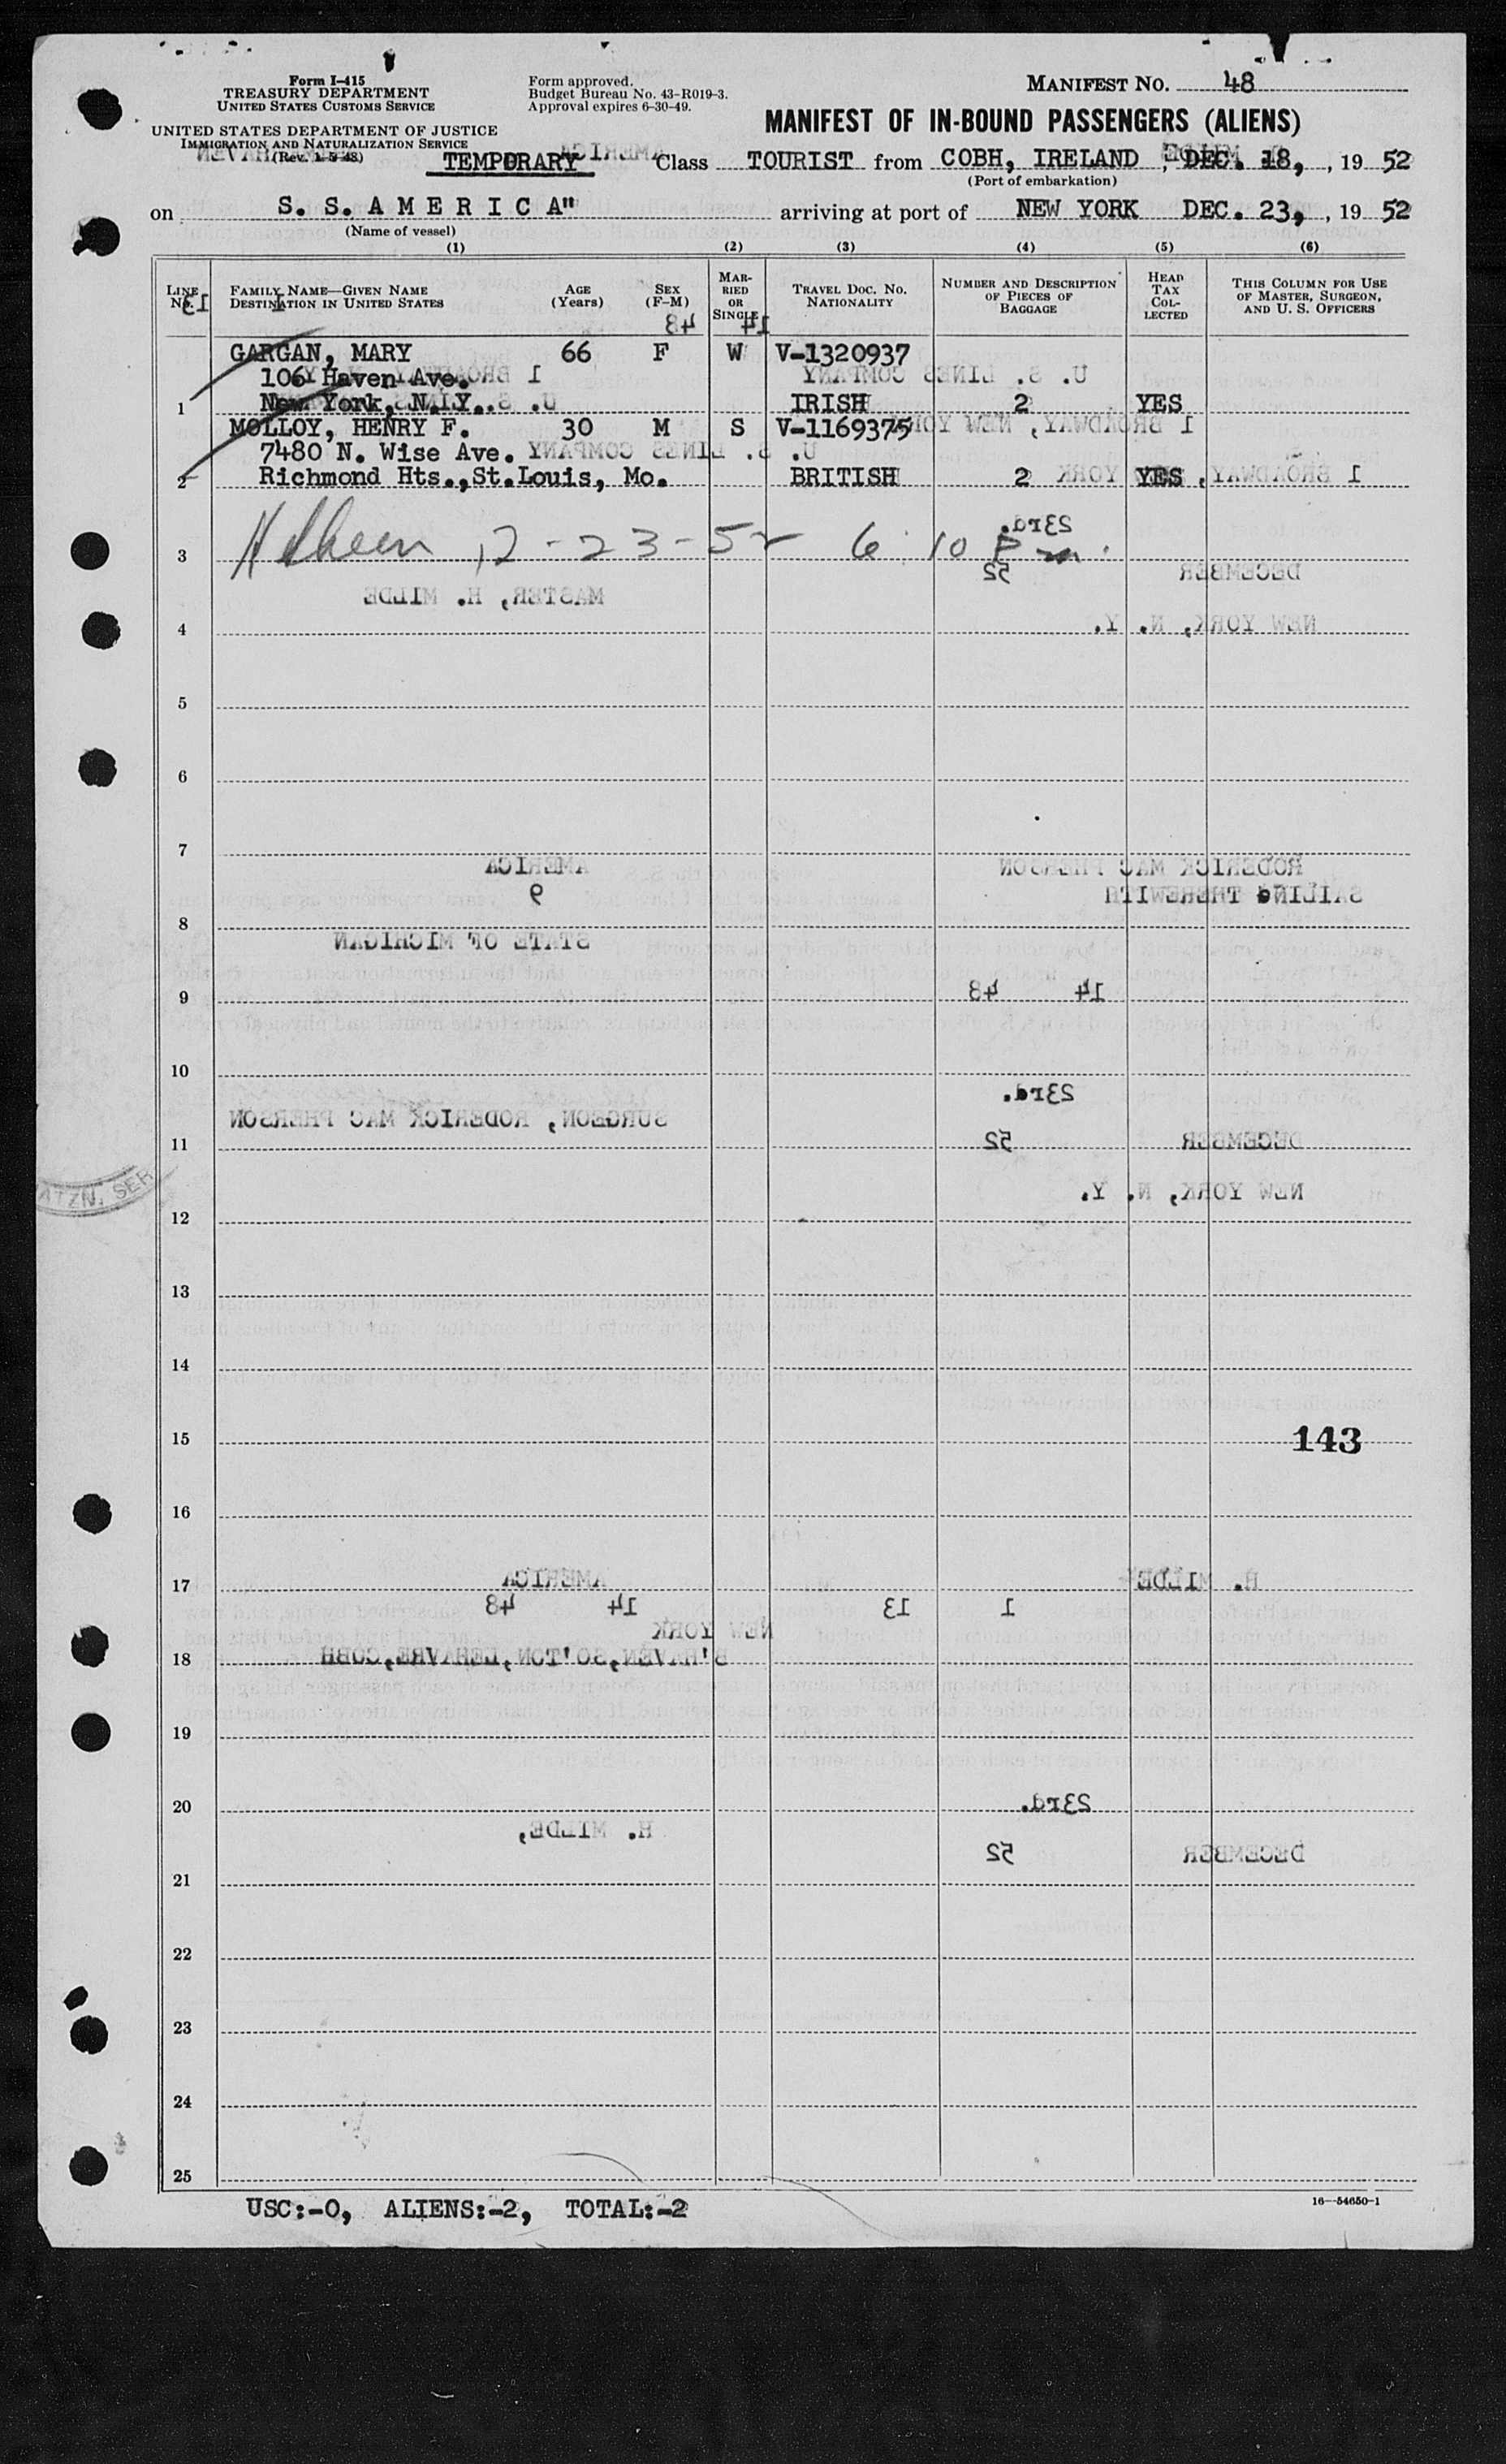 Form I-415
TREASURY DEPARTMENT
UNITED STATES CUSTOMS SERVICE
UNITED STATES DEPARTMENT OF JUSTICE
IMMIGRATION AND NATURALIZATION SERVICE
(Rev. 1-5-48)
Form approved.
Budget Bureau No. 43-R019-3.
Approval expires 6-30-49.
MANIFEST NO. 48
MANIFEST OF IN-BOUND PASSENGERS (ALIENS)
TEMPORARY Class TOURIST from COBH, IRELAND, DEC. 18, , 19 52
(Port of embarkation)
on S. S. A M E R I C A" arriving at port of NEW YORK DEC. 23, , 19 52
(Name of vessel)
(1) (2) (3) (4) (5) (6)
LINE No. FAMILY NAME—GIVEN NAME DESTINATION IN UNITED STATES AGE (Years) SEX (F-M) MARRIED OR SINGLE TRAVEL DOC. NO. NATIONALITY NUMBER AND DESCRIPTION OF PIECES OF BAGGAGE HEAD TAX COLLECTED THIS COLUMN FOR USE OF MASTER, SURGEON, AND U. S. OFFICERS
GARGAN, MARY 66 F W V-1320937
106 Haven Ave.
1 New York, N.Y. IRISH 2 YES
MOLLOY, HENRY F. 30 M S V-1169375
7480 N. Wise Ave.
2 Richmond Hts.,St.Louis, Mo. BRITISH 2 YES
3 12-23-52 6:10 Pm.
4
5
6
7
8
9
10
11
12
13
14
15 143
16
17
18
19
20
21
22
23
24
25
USC:-0, ALIENS:-2, TOTAL:-2
16—54650-1
ATZN. SER